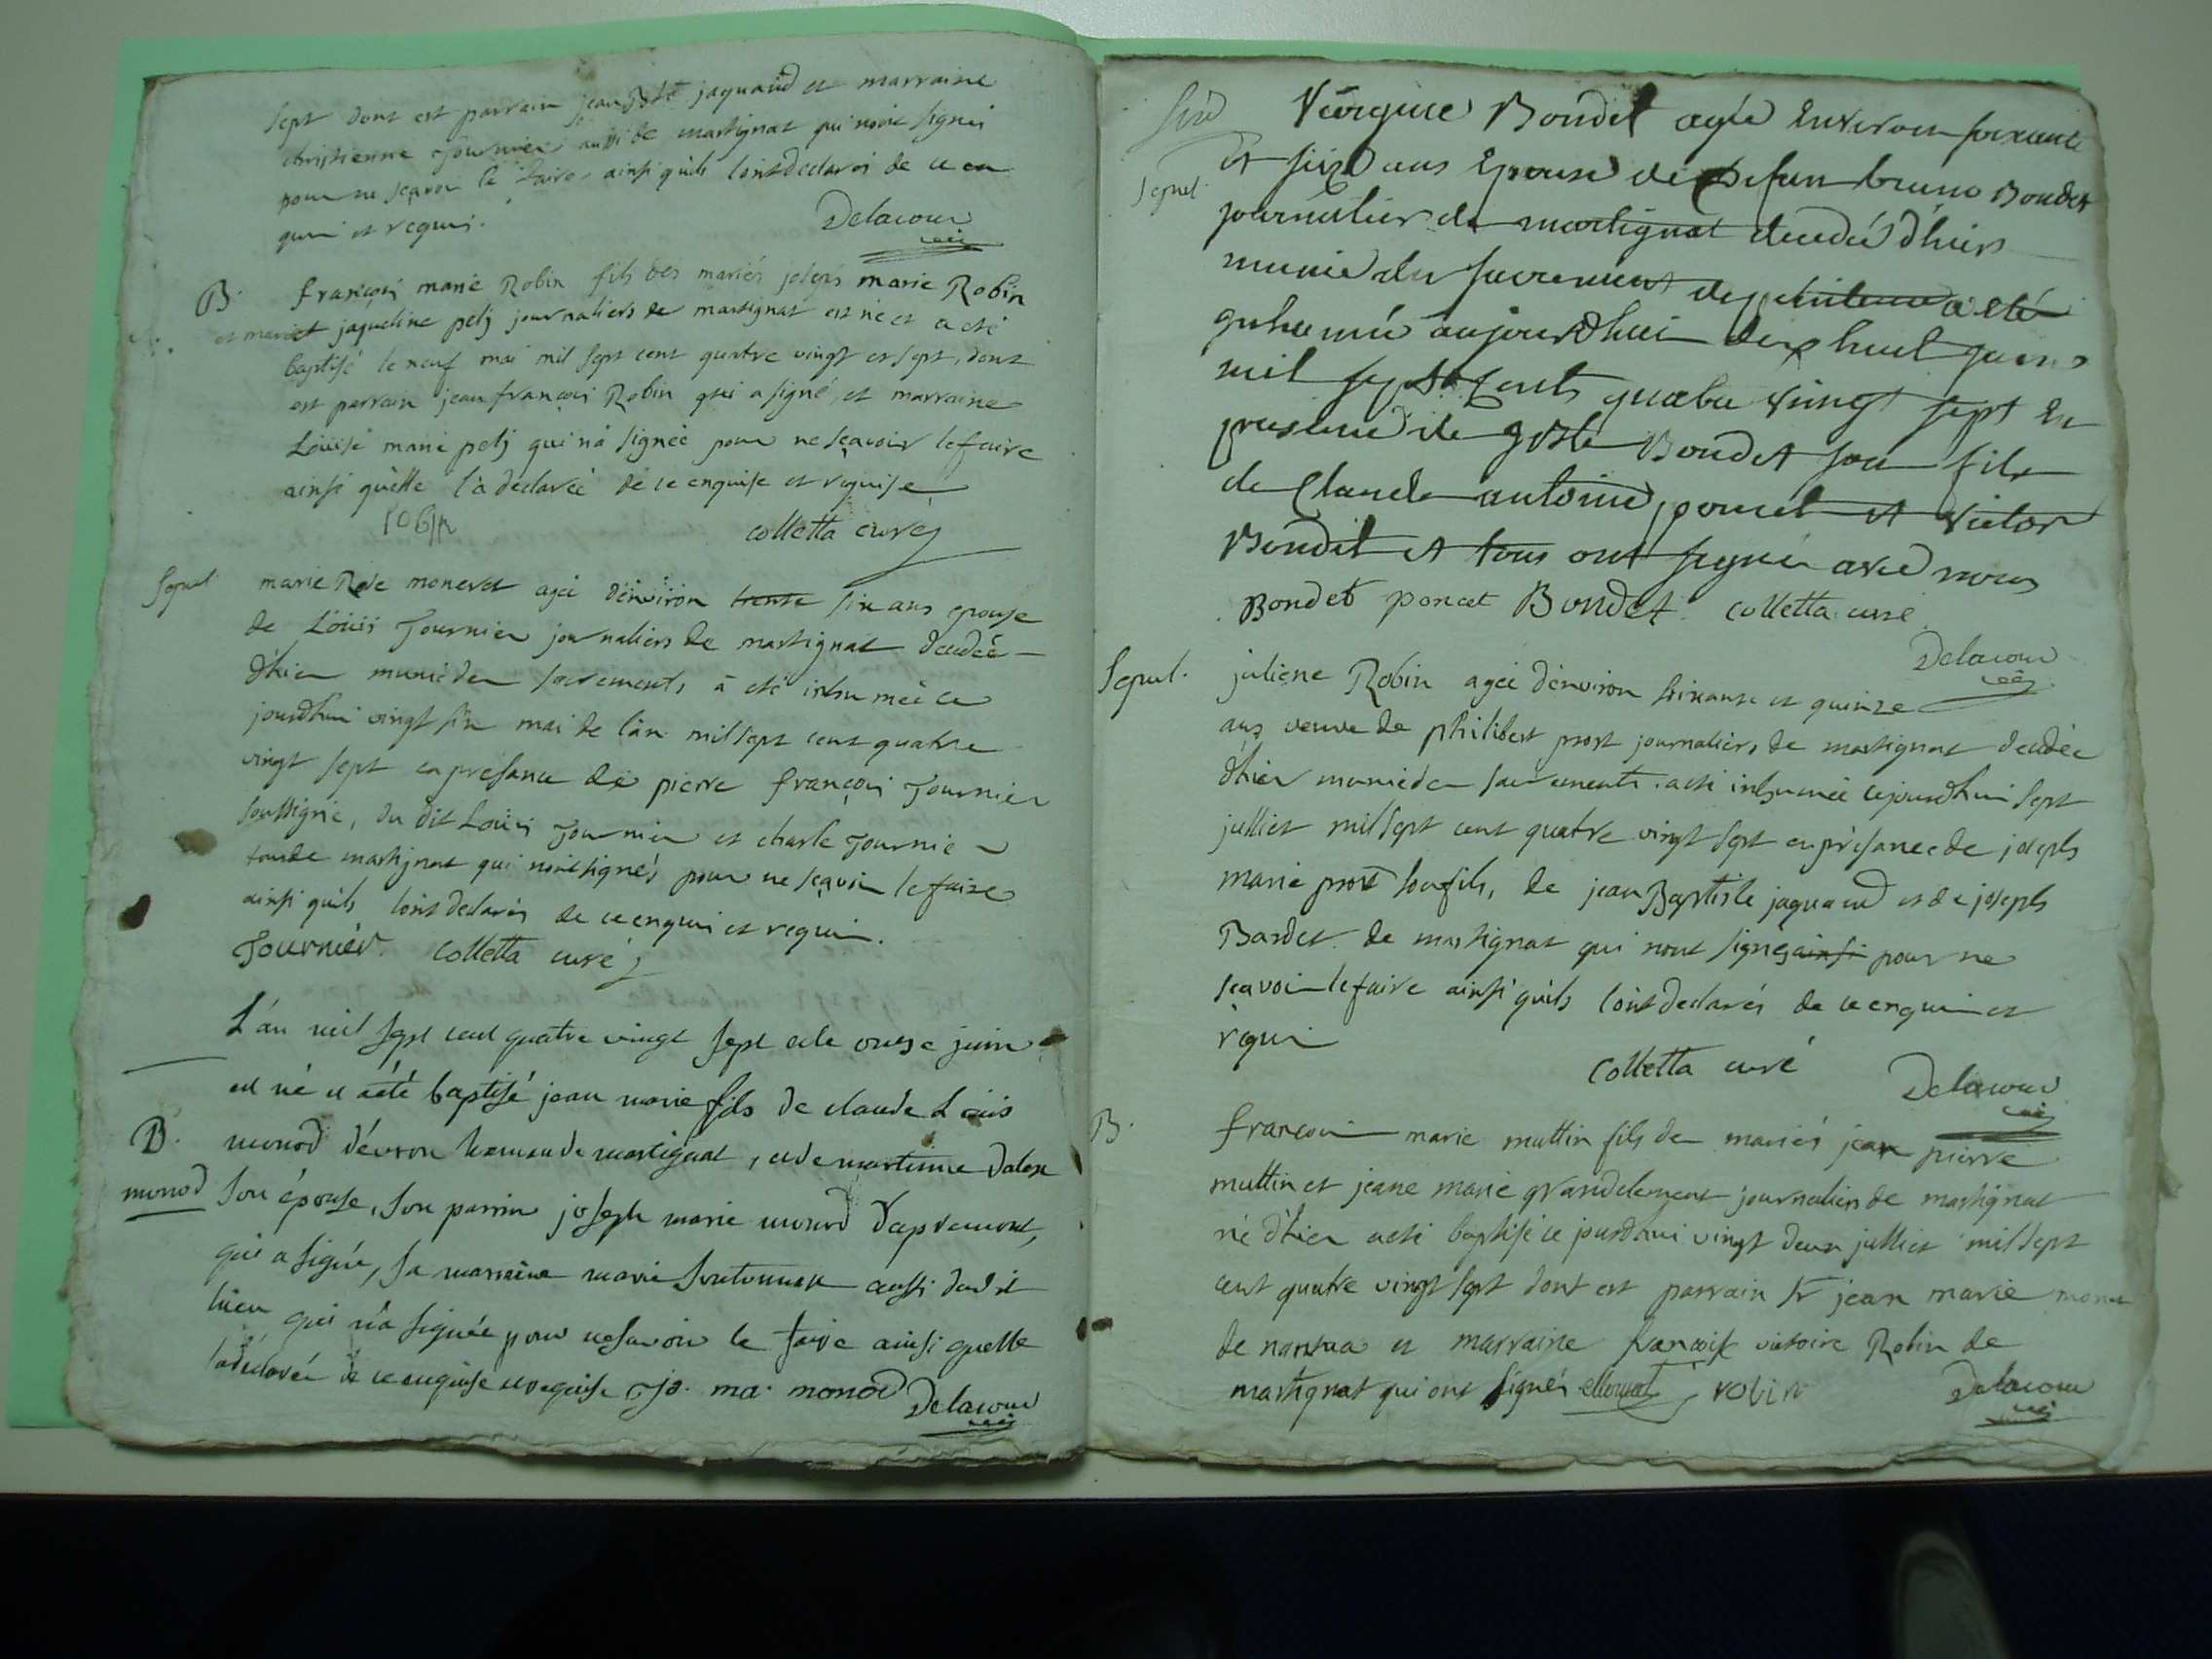 sept dont est parrain jean Bte jaquand et marraine
christienne Tournier aussi de martignat qui nont signés
pour ne sçavoir le faire ainsi quils lont declarés de ce en
quis et requis.
Delacour
B. françois marie Robin fils des mariés joseph marie Robin
et marie jaqueline pelj journaliers de martignat est né et a eté
baptisé le neuf mai mil sept cent quatre vingt et sept, dont
est parrain jean françois Robin qui a signé, et marraine
Loüise marie pelj qui n'a signée pour ne sçavoir le faire
ainsi qu'elle l'a declarée de ce enquise et requise
robin colletta curé
Sepul. marie Rose moneret agée d'environ trente six ans epouse
de Loüis Tournier journaliers de martignat decedée
d'hier munie des sacrements à eté inhumée ce
jourdhui vingt six mai de l'an mil sept cent quatre
vingt sept en présance de pierre françois Tournier
soussigné, du dit Loüis Tournier et charle Tournier
tous de martignat qui n'ont signés pour ne sçavoir le faire
ainsi quils lont declarés de ce enquis et requis.
Tournier colletta curé
L'an mil sept cent quatre vingt sept et le onze juin
est né et a été baptisé jean marie fils de claude Louis
B. monod d'évron de martignat, et de martinne
monod son épouse, son parrin joseph marie monod d'apremont,
qui a signé, sa marraine marie aussi dudit
lieu qui n'a signée pour ne savoir le faire ainsi quelle
la déclarée de ce enquise et requise jo. ma. monod Delacour
Boudet agée Environ soixante
Sepul. et six ans Epouse de defun bruno Boudet
journalier de martignat decedée d'hiers
munie du sacrement de penitence a eté
inhumée aujourdhuit dix huit juin
mil sept Cents quatre vingt sept En
presence de j Bte Boudet son fils
de Claude antoine poncet et victor
Boudet et tous ont signé avec nous
Bondet poncet Bondet. colletta curé
Delacour
Sepul. juliene Robin agée d'environ soixante et quinze
ans veuve de philibert prost journaliers de martignat decedée
d'hier munie des sacrements a eté inhumée cejourdhui sept
julliet mil sept cent quatre vingt sept en présance de joseph
marie prost son fils, de jean Baptiste jaquand et de joseph
Bardet de martignat qui nont signés ainsi pour ne
scavoir le faire ainsi quils lont declarés de ce enquis et
requis
colletta curé
Delacour
B. francois marie muttin fils des mariés jean pierre
muttin et jeane marie grandclement journaliers de martignat
né d'hier a eté baptisé ce jourdhui vingt deux julliet mil sept
cent quatre vingt sept dont est parrain sr jean marie
de nantua et marraine francoise victoire Robin de
martignat qui ont signés robin Delacour